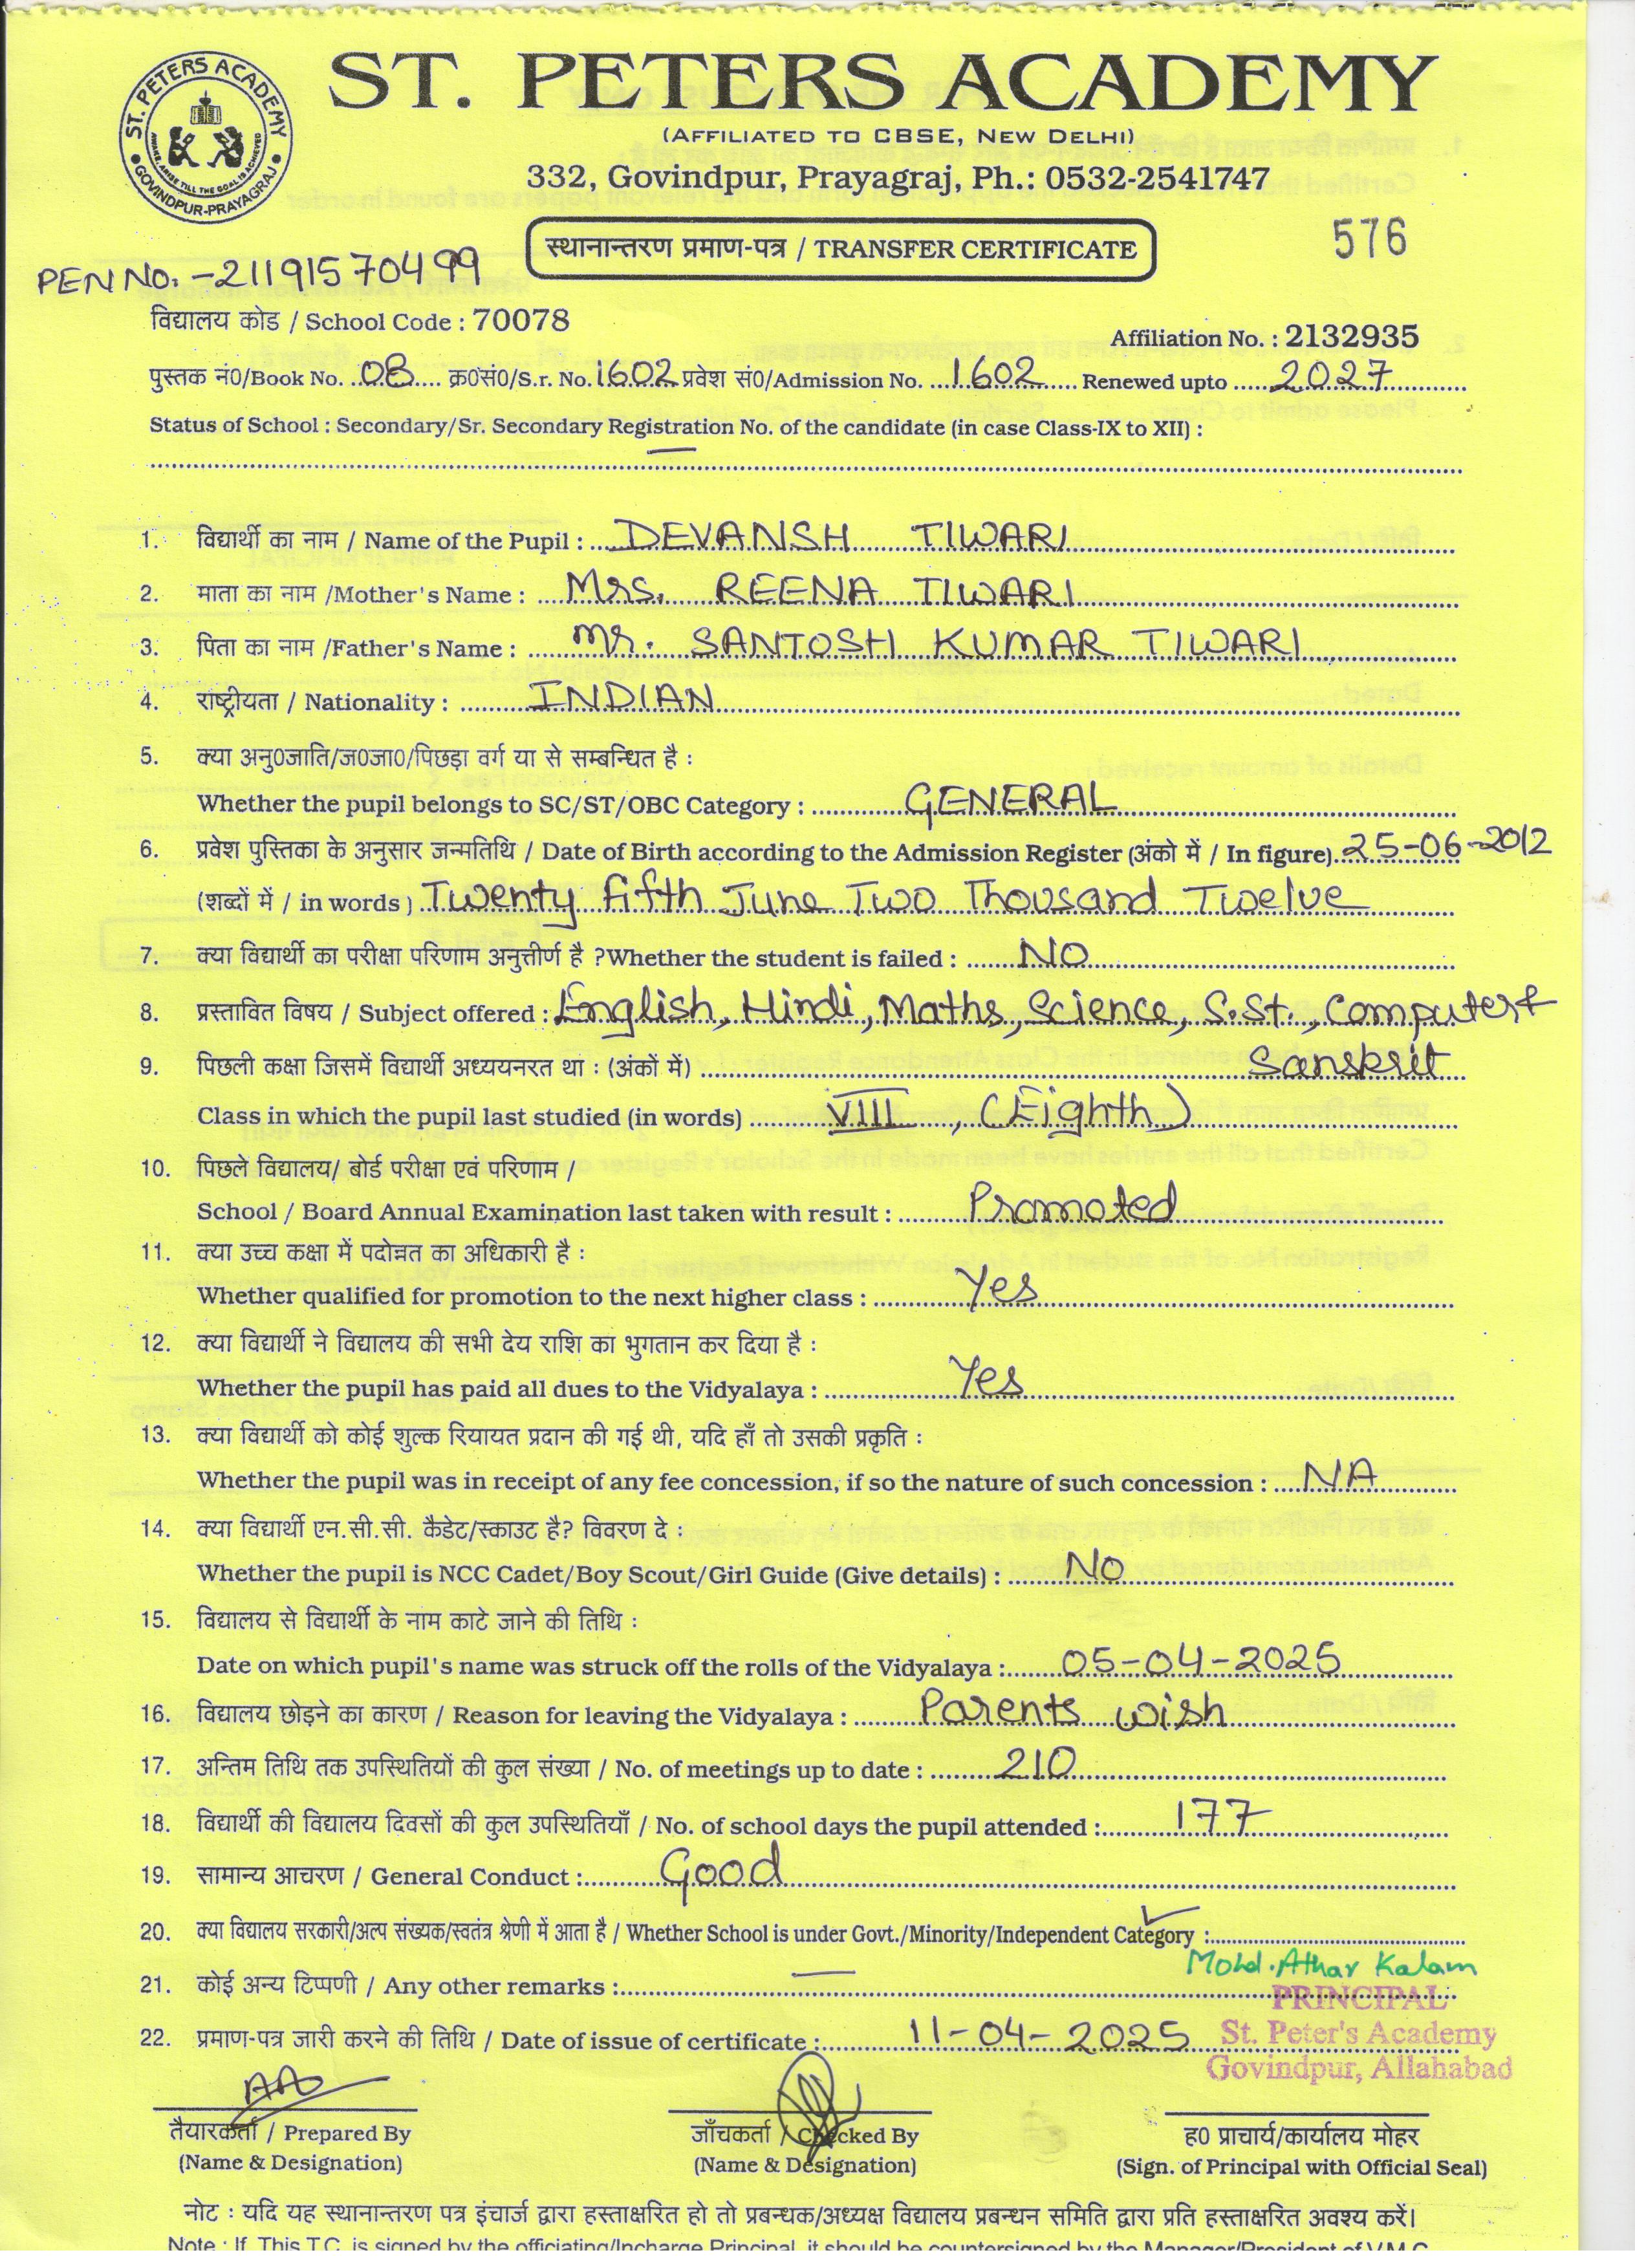 ST. PETERS ACADEMY
GOVINDPUR-PRAYAGRAJ
ST. PETERS ACADEMY
(AFFILIATED TO CBSE, NEW DELHI)
332, Govindpur, Prayagraj, Ph.: 0532-2541747
स्थानान्तरण प्रमाण-पत्र / TRANSFER CERTIFICATE
576
PEN NO. - 21191570499
विद्यालय कोड / School Code : 70078
Affiliation No. : 2132935
पुस्तक नं0/Book No. 08 क्र0सं0/S.r. No. 1602 प्रवेश सं0/Admission No. 1602 Renewed upto 2027
Status of School : Secondary/Sr. Secondary Registration No. of the candidate (in case Class-IX to XII) :
1. विद्यार्थी का नाम / Name of the Pupil : DEVANSH TIWARI
2. माता का नाम /Mother's Name : Mrs. REENA TIWARI
3. पिता का नाम /Father's Name : Mr. SANTOSH KUMAR TIWARI
4. राष्ट्रीयता / Nationality : INDIAN
5. क्या अनु0जाति/ज0जा0/पिछड़ा वर्ग या से सम्बन्धित है :
Whether the pupil belongs to SC/ST/OBC Category : GENERAL
6. प्रवेश पुस्तिका के अनुसार जन्मतिथि / Date of Birth according to the Admission Register (अंको में / In figure) 25-06-2012
(शब्दों में / in words) Twenty fifth June Two Thousand Twelve
7. क्या विद्यार्थी का परीक्षा परिणाम अनुत्तीर्ण है ?Whether the student is failed : NO
8. प्रस्तावित विषय / Subject offered : English, Hindi, Maths, Science, S.St., Computer &
Sanskrit
9. पिछली कक्षा जिसमें विद्यार्थी अध्ययनरत था : (अंकों में)
Class in which the pupil last studied (in words) VIII, (Eighth)
10. पिछले विद्यालय/ बोर्ड परीक्षा एवं परिणाम /
School / Board Annual Examination last taken with result : Promoted
11. क्या उच्च कक्षा में पदोन्नत का अधिकारी है :
Whether qualified for promotion to the next higher class : Yes
12. क्या विद्यार्थी ने विद्यालय की सभी देय राशि का भुगतान कर दिया है :
Whether the pupil has paid all dues to the Vidyalaya : Yes
13. क्या विद्यार्थी को कोई शुल्क रियायत प्रदान की गई थी, यदि हाँ तो उसकी प्रकृति :
Whether the pupil was in receipt of any fee concession, if so the nature of such concession : NA
14. क्या विद्यार्थी एन.सी.सी. कैडेट/स्काउट है? विवरण दे :
Whether the pupil is NCC Cadet/Boy Scout/Girl Guide (Give details) : NO
15. विद्यालय से विद्यार्थी के नाम काटे जाने की तिथि :
Date on which pupil's name was struck off the rolls of the Vidyalaya : 05-04-2025
16. विद्यालय छोड़ने का कारण / Reason for leaving the Vidyalaya : Parents wish
17. अन्तिम तिथि तक उपस्थितियों की कुल संख्या / No. of meetings up to date : 210
18. विद्यार्थी की विद्यालय दिवसों की कुल उपस्थितियाँ / No. of school days the pupil attended : 177
19. सामान्य आचरण / General Conduct : Good
20. क्या विद्यालय सरकारी/अल्प संख्यक/स्वतंत्र श्रेणी में आता है / Whether School is under Govt./Minority/Independent Category :
Mohd. Athar Kalam
21. कोई अन्य टिप्पणी / Any other remarks :
PRINCIPAL
St. Peter's Academy
Govindpur, Allahabad
22. प्रमाण-पत्र जारी करने की तिथि / Date of issue of certificate : 11-04-2025
तैयारकर्ता / Prepared By
(Name & Designation)
जाँचकर्ता / Checked By
(Name & Designation)
ह0 प्राचार्य/कार्यालय मोहर
(Sign. of Principal with Official Seal)
नोट : यदि यह स्थानान्तरण पत्र इंचार्ज द्वारा हस्ताक्षरित हो तो प्रबन्धक/अध्यक्ष विद्यालय प्रबन्धन समिति द्वारा प्रति हस्ताक्षरित अवश्य करें।
Note : If This T.C. is signed by the officiating/Incharge Principal, it should be countersigned by the Manager/President of V.M.C.